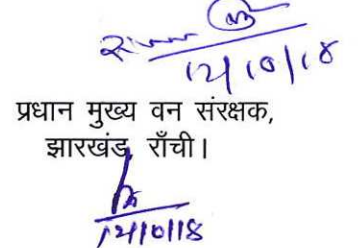 12/10/18
प्रधान मुख्य वन संरक्षक,
झारखंड, राँची।
12/10/18